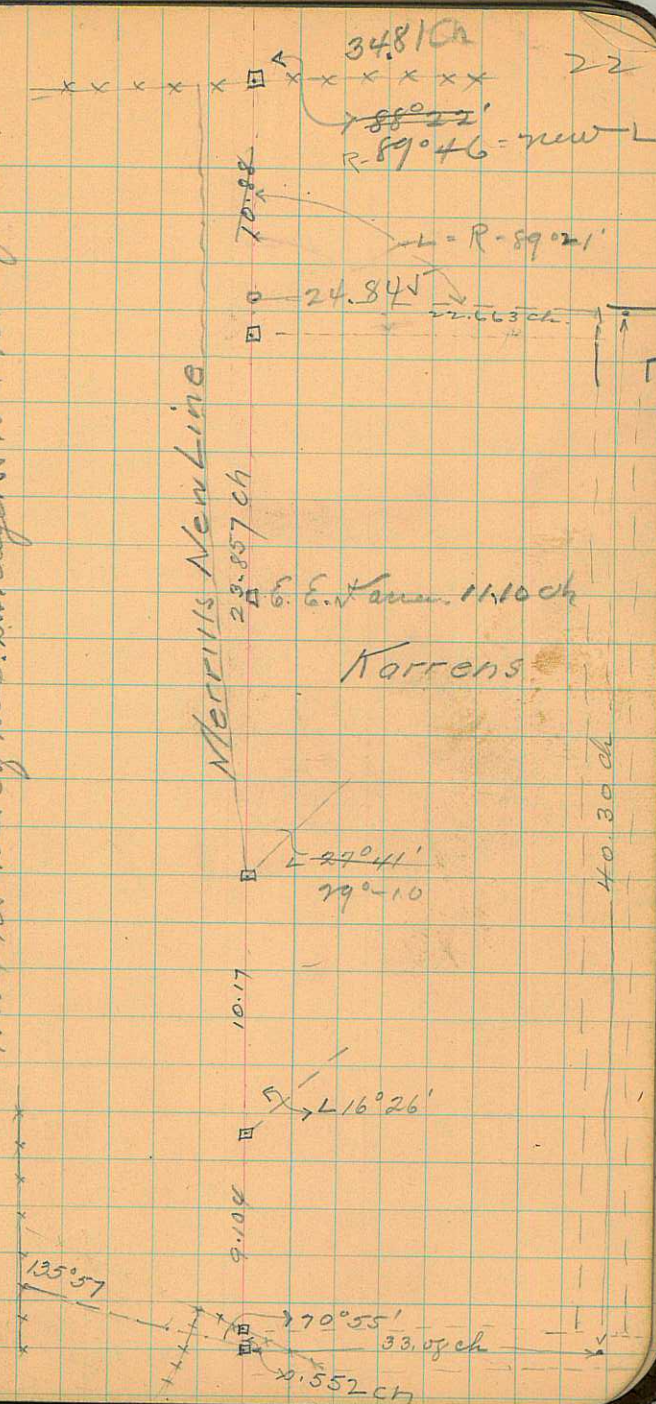 34.81 Ch
22
88°22'
R-89°46 = new L
10.88
L = R-89°21'
24.845
22.663 ch.
Merrills New Line
23.857 ch
E. E. Karren. 11.10 ch
Karrens
40.30 ch
L 27°41'
29°-10
10.17
L 16°26'
9.104
135°57
70°55'
33.08 ch
0.552 ch